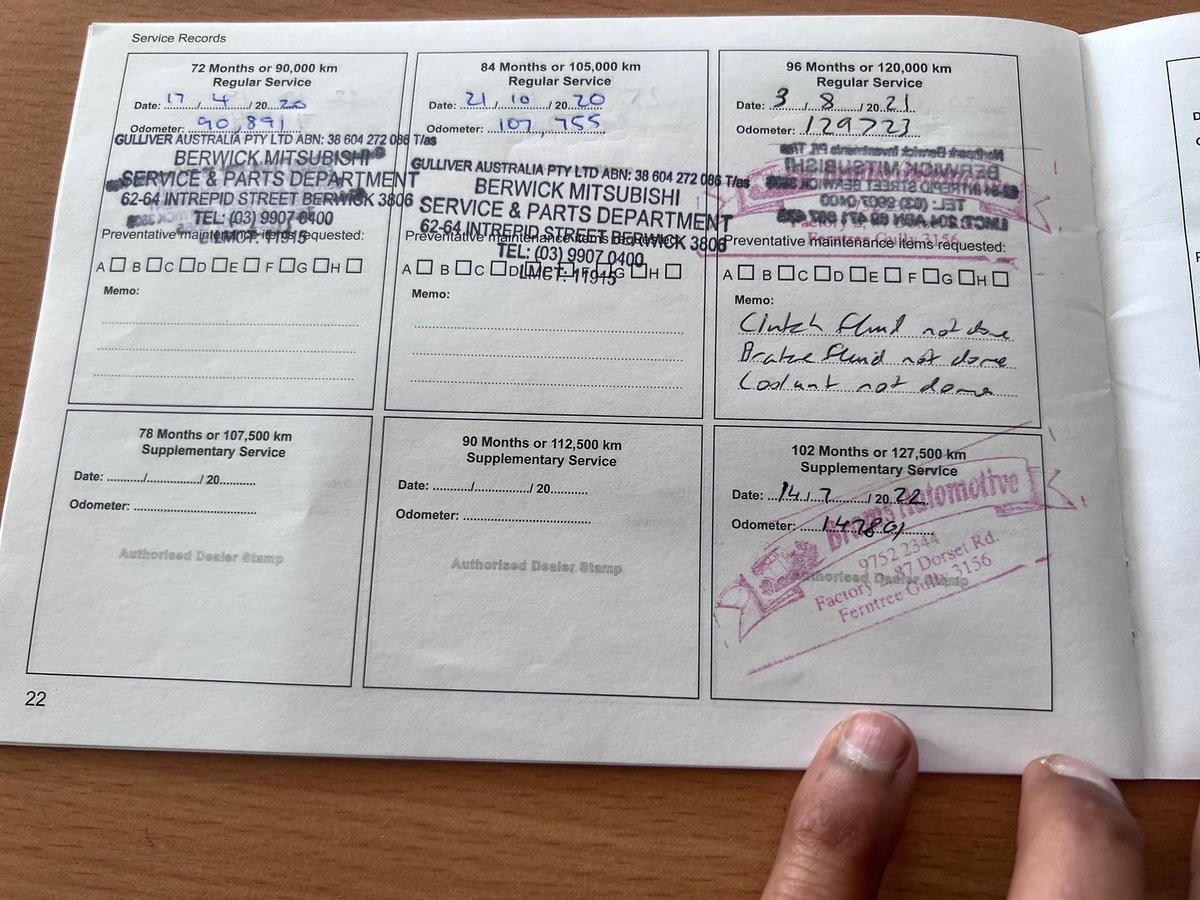 Service Records
72 Months or 90,000 km
Regular Service
Date: 17 / 4 / 20 20
Odometer: 90,891
GULLIVER AUSTRALIA PTY LTD ABN: 38 604 272 086 T/as
BERWICK MITSUBISHI
SERVICE & PARTS DEPARTMENT
62-64 INTREPID STREET BERWICK 3806
TEL: (03) 9907 0400
LMCT: 11915
Preventative maintenance items requested:
A B C D E F G H
Memo:
84 Months or 105,000 km
Regular Service
Date: 21 / 10 / 20 20
Odometer: 107,755
GULLIVER AUSTRALIA PTY LTD ABN: 38 604 272 086 T/as
BERWICK MITSUBISHI
SERVICE & PARTS DEPARTMENT
62-64 INTREPID STREET BERWICK 3806
TEL: (03) 9907 0400
LMCT: 11915
Preventative maintenance items requested:
A B C D F G H
Memo:
96 Months or 120,000 km
Regular Service
Date: 3 / 8 / 20 21
Odometer: 129723
Ferntree Gully 3156
Preventative maintenance items requested:
A B C D E F G H
Memo:
Clutch fluid not done
Brake fluid not done
Coolant not done
78 Months or 107,500 km
Supplementary Service
Date: ........../............../ 20..........
Odometer:
Authorised Dealer Stamp
90 Months or 112,500 km
Supplementary Service
Date: ........../............../ 20..........
Odometer:
Authorised Dealer Stamp
102 Months or 127,500 km
Supplementary Service
Date: 14 / 7 / 20 22
Odometer: 142801
Automotive
9752 2344
87 Dorset Rd.
Factory
Ferntree Gully 3156
Authorised Dealer Stamp
22